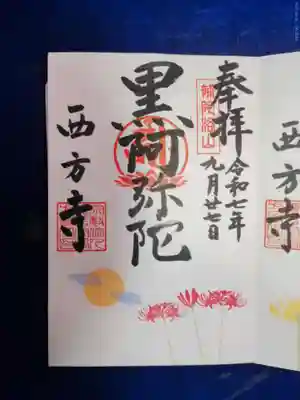 奉拝
令和七年
九月廿七日
補陀洛山
黒阿弥陀
西方寺
西方寺